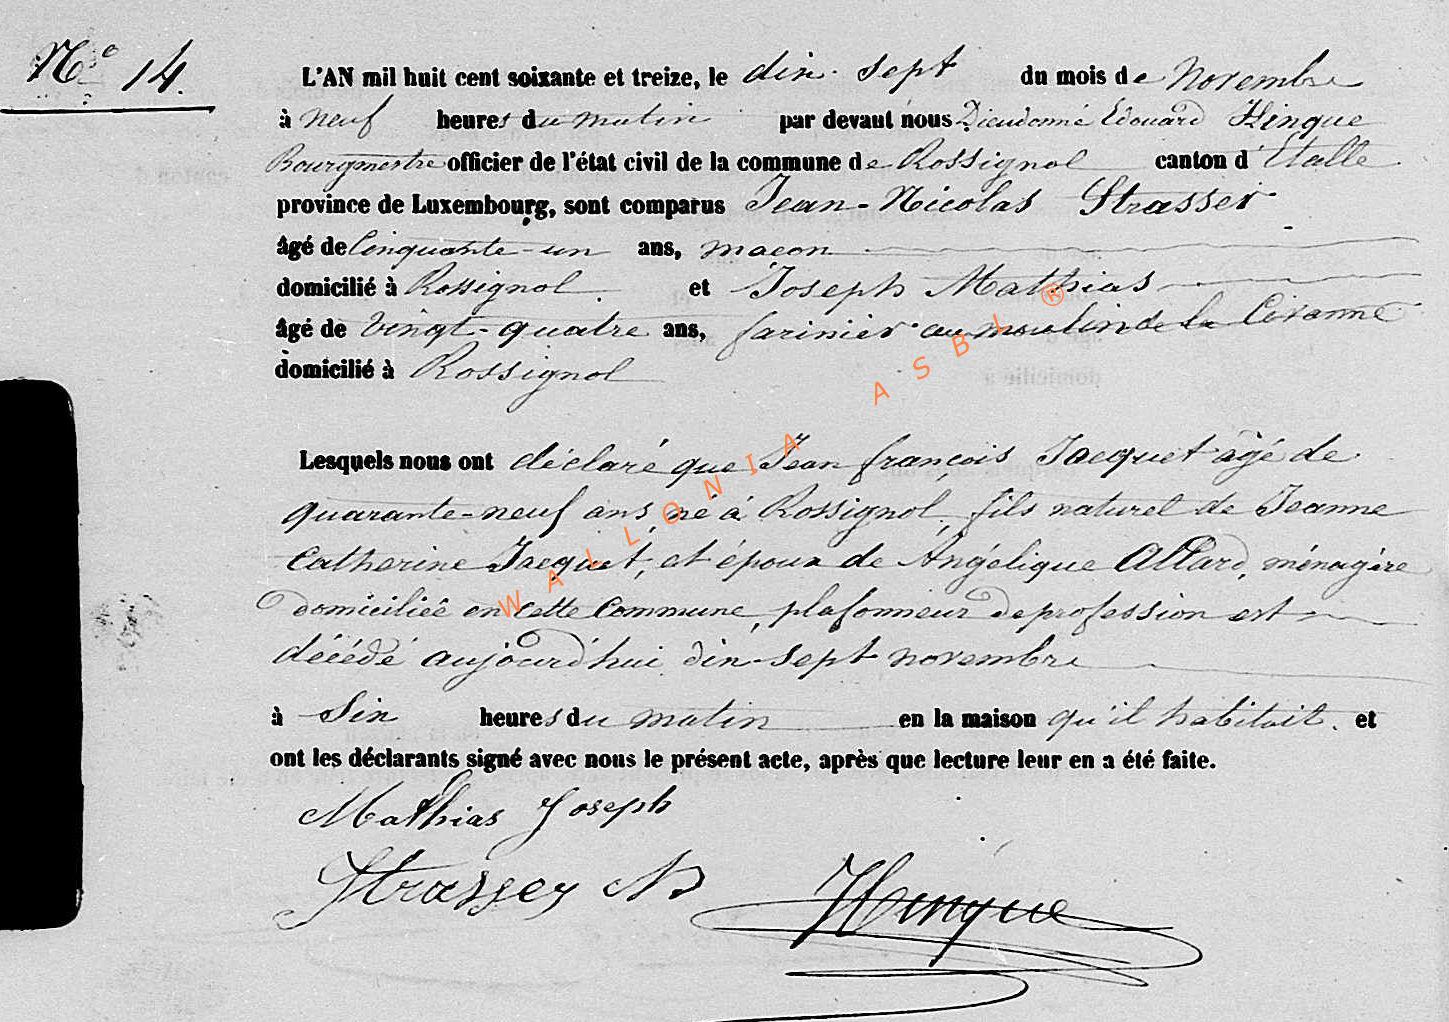 N° 14.
L'AN mil huit cent soixante et treize, le dix-sept du mois de Novembre
à neuf heures du matin par devant nous Dieudonné Edouard Hinque
Bourgmestre officier de l'état civil de la commune de Rossignol canton d'Etalle
province de Luxembourg, sont comparus Jean-Nicolas Strasser
âgé de Cinquante-un ans, maçon
domicilié à Rossignol. et Joseph Mathias
âgé de vingt-quatre ans, farinier au moulin de la Civanne
domicilié à Rossignol
Lesquels nous ont déclaré que Jean françois Jacquet âgé de
quarante-neuf ans, né à Rossignol, fils naturel de Jeanne
Catherine Jacquet, et époux de Angélique Allard, ménagère
domiciliée en cette Commune, plafonneur de profession est
décédé aujourd'hui dix-sept novembre
à Six heures du matin en la maison qu'il habitait. et
ont les déclarants signé avec nous le présent acte, après que lecture leur en a été faite.
Mathias Joseph
Strasser N
Hinque
WALLONIA ASBL ®